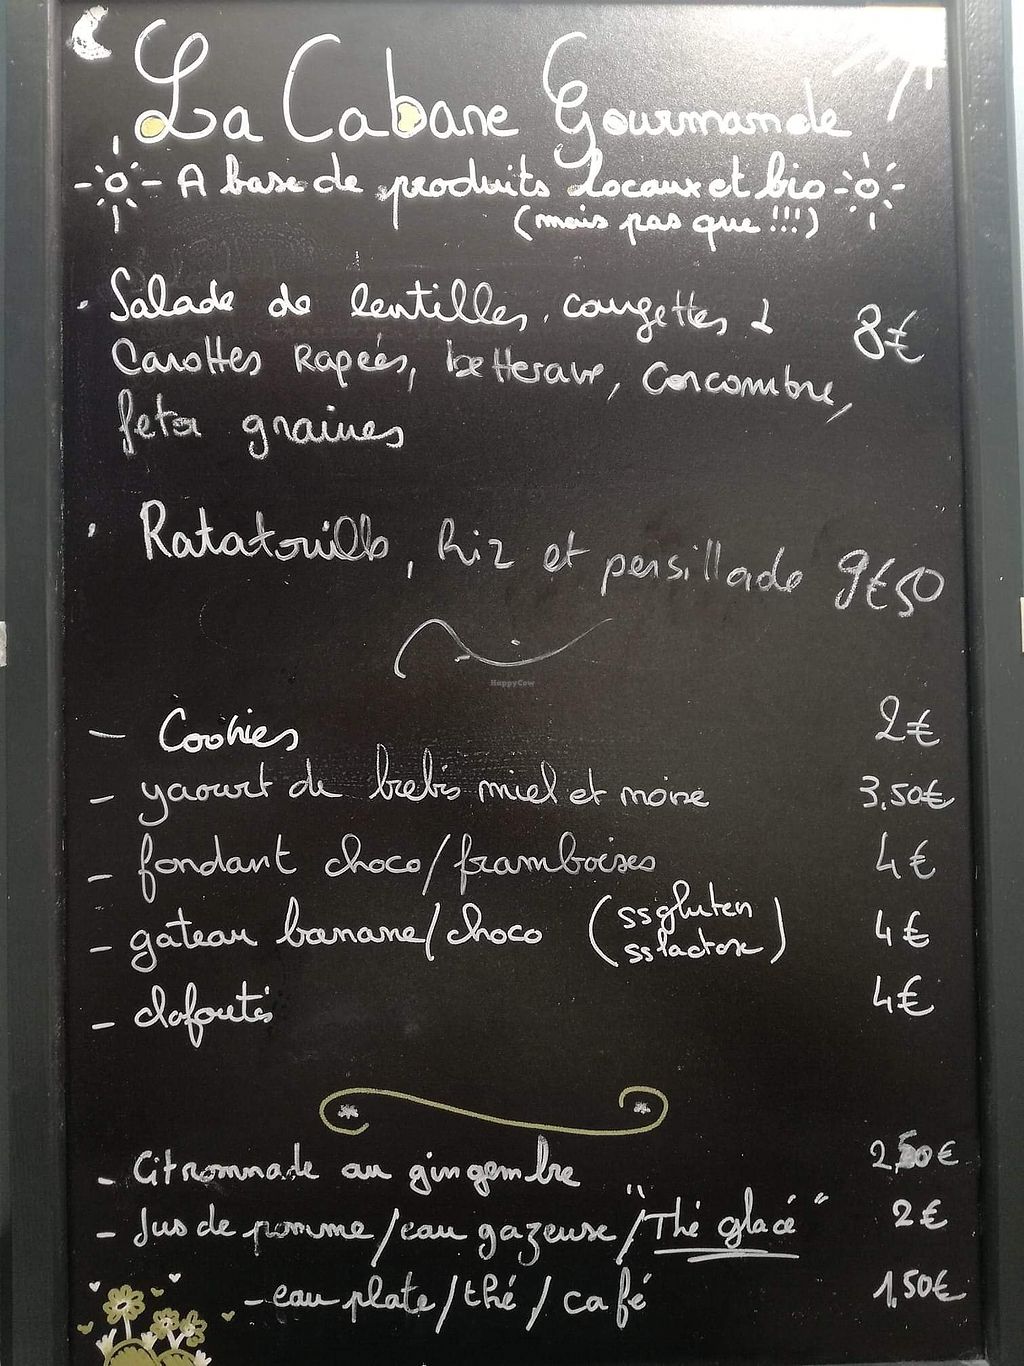 La Cabane Gourmande
A base de produits locaux et bio
(mais pas que !!!)
Salade de lentilles, courgettes &
Carottes Rapées, betterave, Concombre,
feta graines
8€
Ratatouille, Riz et persillade 9€50
HappyCow
- Cookies 2€
- yaourt de brebis miel et noix 3,50€
- fondant choco/framboises 4€
- gateau banane/choco (ss gluten
ss lactose) 4€
- clafoutis 4€
- Citronnade au gingembre 2,50€
- Jus de pomme/eau gazeuse/"Thé glacé" 2€
- eau plate/thé/café 1,50€